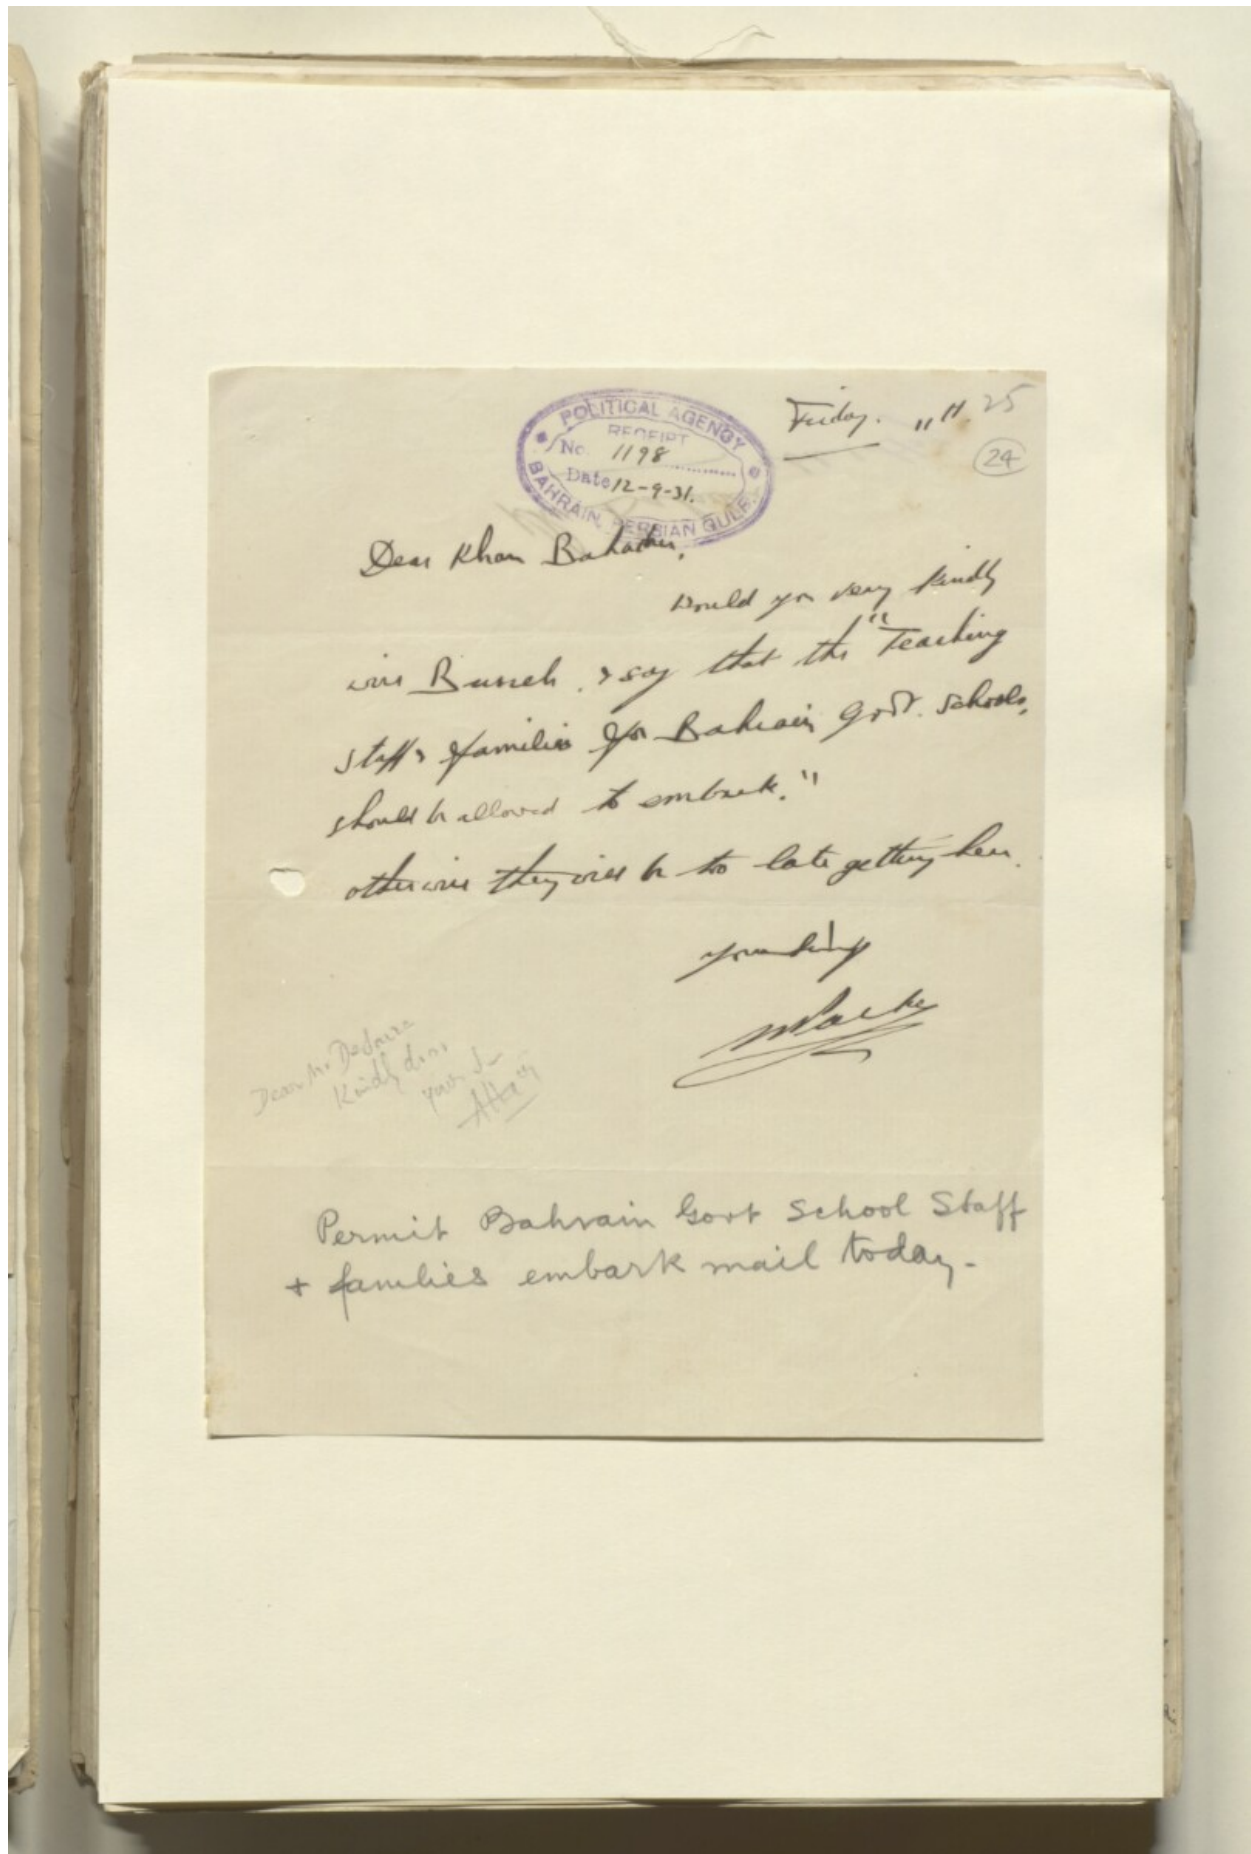 Friday. " 11. 25
24
POLITICAL AGENCY
RECEIPT
No. 1198
Date 12-9-31.
BAHRAIN, PERSIAN GULF.
Dear Khan Bahadur,
Would you very kindly
wire Busreh. & say that the "Teaching
staff & families for Bahrain Govt. Schools,
should be allowed to embark."
otherwise they will be too late getting here.
Dear Mr.
Kindly
Permit Bahrain Govt School Staff
+ families embark mail today-